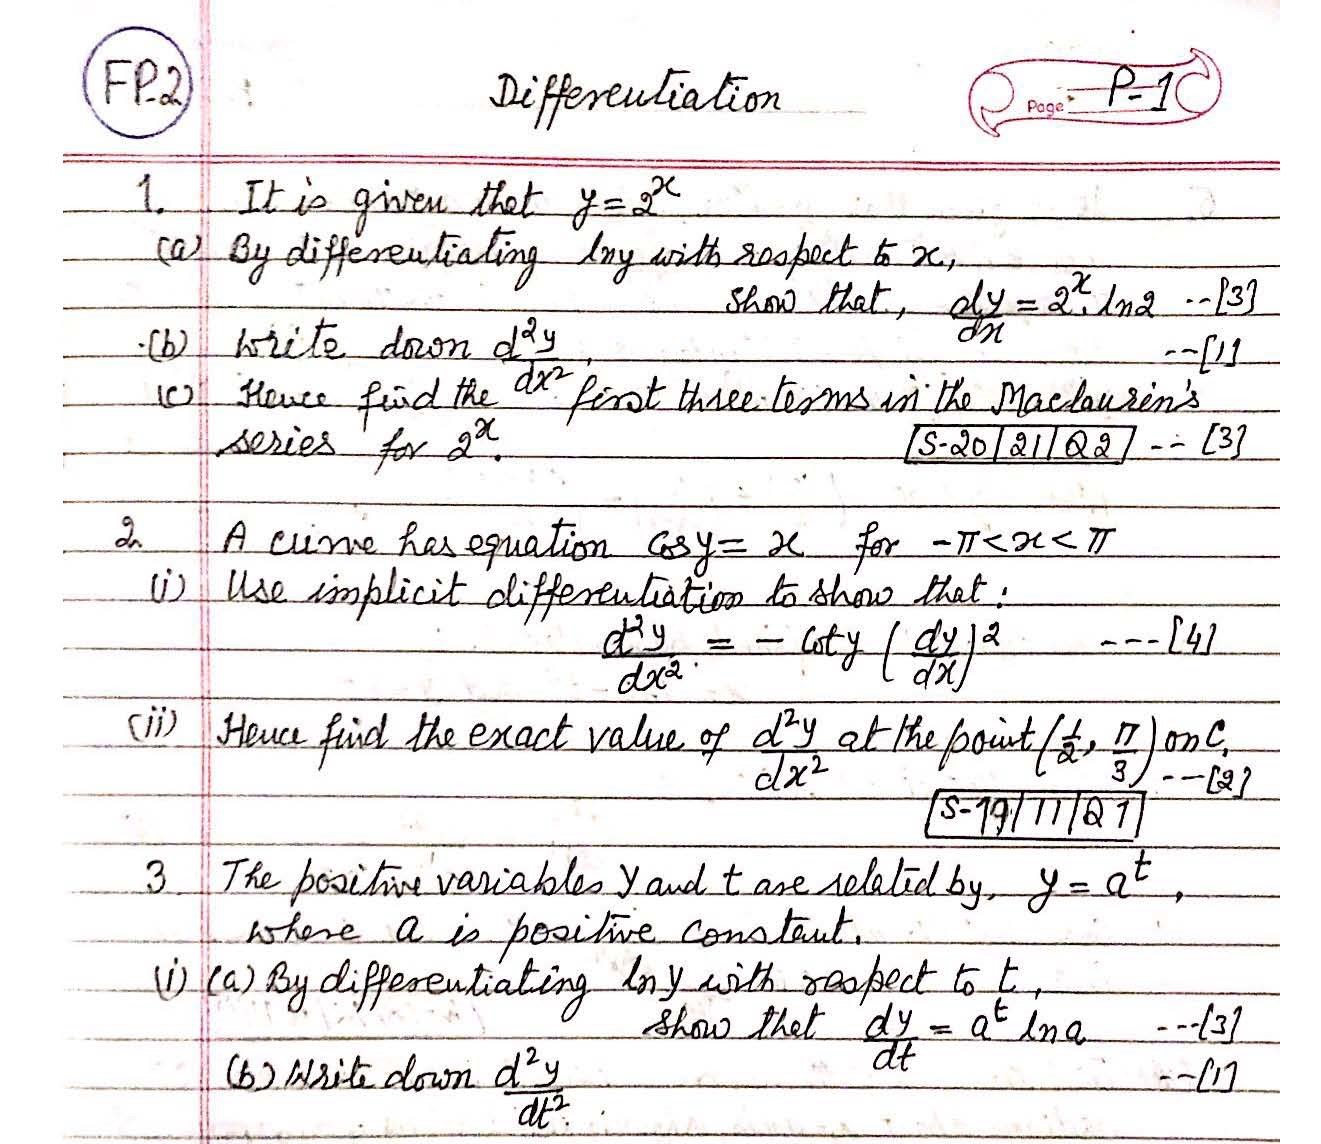 FP-2
Differentiation
Page P-1
1. It is given that y = 2^x
(a) By differentiating lny with respect to x,
show that, dy/dx = 2^x. ln2 --[3]
(b) Write down d²y/dx². --[1]
(c) Hence find the first three terms in the Maclaurin's
series for 2^x. S-20/21/Q2 -- [3]
2. A curve has equation Cosy = x for -π<x<π
(i) Use implicit differentiation to show that:
d²y/dx² = - Coty (dy/dx)² ---[4]
(ii) Hence find the exact value of d²y/dx² at the point (1/2, π/3) on C.
---[2]
S-19/11/Q1
3 The positive variables y and t are related by, y = a^t,
where a is positive constant.
(i) (a) By differentiating lny with respect to t,
show that dy/dt = a^t ln a ---[3]
(b) Write down d²y/dt². --[1]